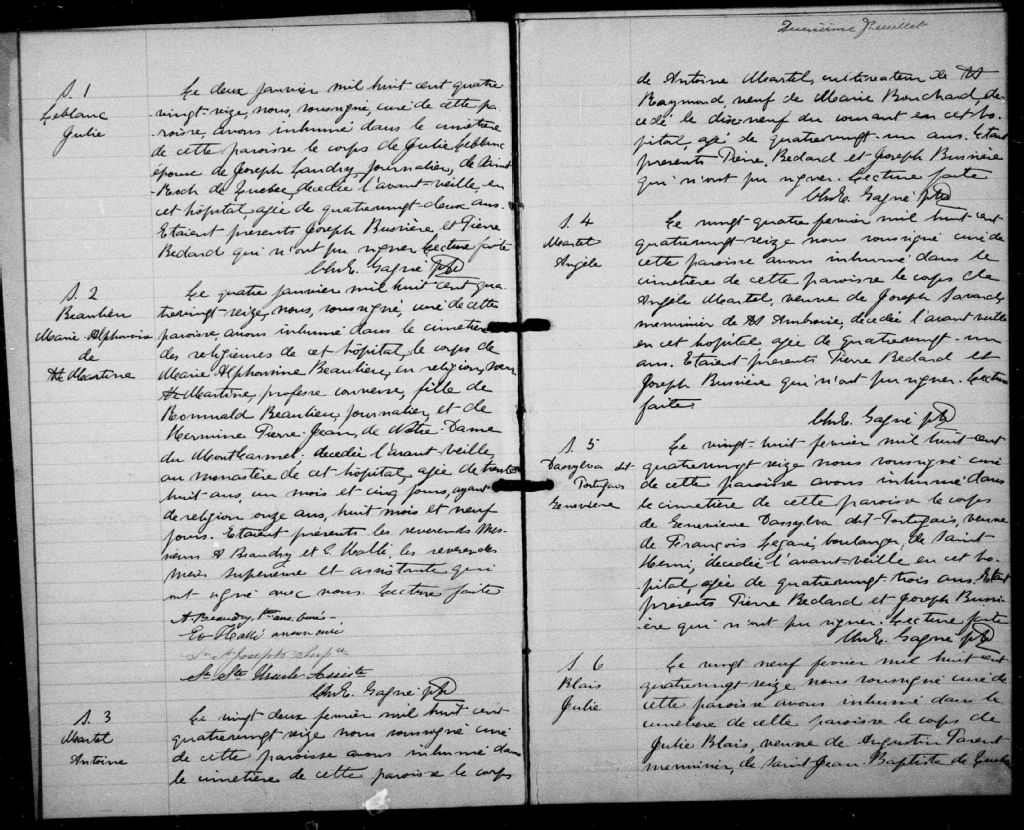 S. 1
Leblanc
Julie
Le deux janvier mil huit cent quatre
-vingt-seize, nous, soussigné, curé de cette pa-
roisse, avons inhumé dans le cimetière
de cette paroisse le corps de Julie Leblanc
épouse de Joseph Landry, journalier, de Saint
-Roch de Quebec, decédée l'avant-veille, en
cet hôpital, agée de quatrevingt-deux ans.
Etaient présents Joseph Bussière et Pierre
Bedard qui n'ont pu signer. Lecture faite
Chs E. Gagné ptre
S. 2
Beaulieu
Marie-Alphonsine
de
Ste Martine
Le quatre janvier mil huit cent qua-
trevingt-seize, nous, soussigné, curé de cette
paroisse, avons inhumé dans le cimetière
des religieuses de cet hôpital, le corps de
Marie Alphonsine Beaulieu, en religion, Soeur
Ste Martine, professe converse, fille de
Romuald Beaulieu, journalier, et de
Hermine Pierre-Jean, de Notre-Dame
du Mont Carmel, decédée l'avant-veille,
au monastère de cet hôpital, agée de trente
huit ans, un mois et cinq jours, ayant
de religion onze ans, huit mois et neuf
jours. Etaient présents les reverends Mes-
sieurs A Beaudry et E. Hallé, les reverendes
meres superieure et assistante qui
ont signé avec nous. Lecture faite
A. Beaudry, Ptre anc. curé.
Ed. Hallé ancien curé
Sr St Joseph Supre
Sr Ste Ursule Assiste
Chs E. Gagné ptre
S. 3
Martel
Antoine
Le vingt deux fevrier mil huit cent
quatrevingt-seize nous soussigné curé
de cette paroisse avons inhumé dans
le cimetière de cette paroisse le corps
Deuxième Feuillet
de Antoine Martel, cultivateur de St
Raymond, veuf de Marie Bouchard, de-
cédé le dix-neuf du courant en cet ho-
pital agé de quatrevingt-un ans. Etaient
présents Pierre Bedard et Joseph Bussière
qui n'ont pu signer. Lecture faite
Chs E. Gagné ptre
S. 4
Martel
Angèle
Le vingt quatre fevrier mil huit cent
quatrevingt-seize nous soussigné curé de
cette paroisse avons inhumé dans le
cimetière de cette paroisse le corps de
Angèle Martel, veuve de Joseph Savard,
menuisier de St Ambroise, décédée l'avant veille
en cet hopital agée de quatrevingt-un
ans. Etaient présents Pierre Bedard et
Joseph Bussière qui n'ont pu signer. Lecture
faite.
Chs E. Gagné ptre
S. 5
Dassylva dit
Portugais
Genevieve
Le vingt-huit fevrier mil huit cent
quatrevingt seize nous soussigné curé
de cette paroisse avons inhumé dans
le cimetière de cette paroisse le corps
de Genevieve Dassylva dit-Portugais, veuve
de François Legaré, boulanger, de Saint
Henri, décédée l'avant-veille en cet ho-
pital, agée de quatrevingt trois ans. Etaient
présents Pierre Bedard et Joseph Bussi-
ère qui n'ont pu signer. Lecture faite
Chs E. Gagné ptre
S. 6
Blais
Julie
Le vingt neuf fevrier mil huit cent
quatrevingt seize nous soussigné curé de
cette paroisse avons inhumé dans le
cimetière de cette paroisse le corps de
Julie Blais, veuve de Augustin Parent
menuisier, de Saint Jean-Baptiste de Quebec